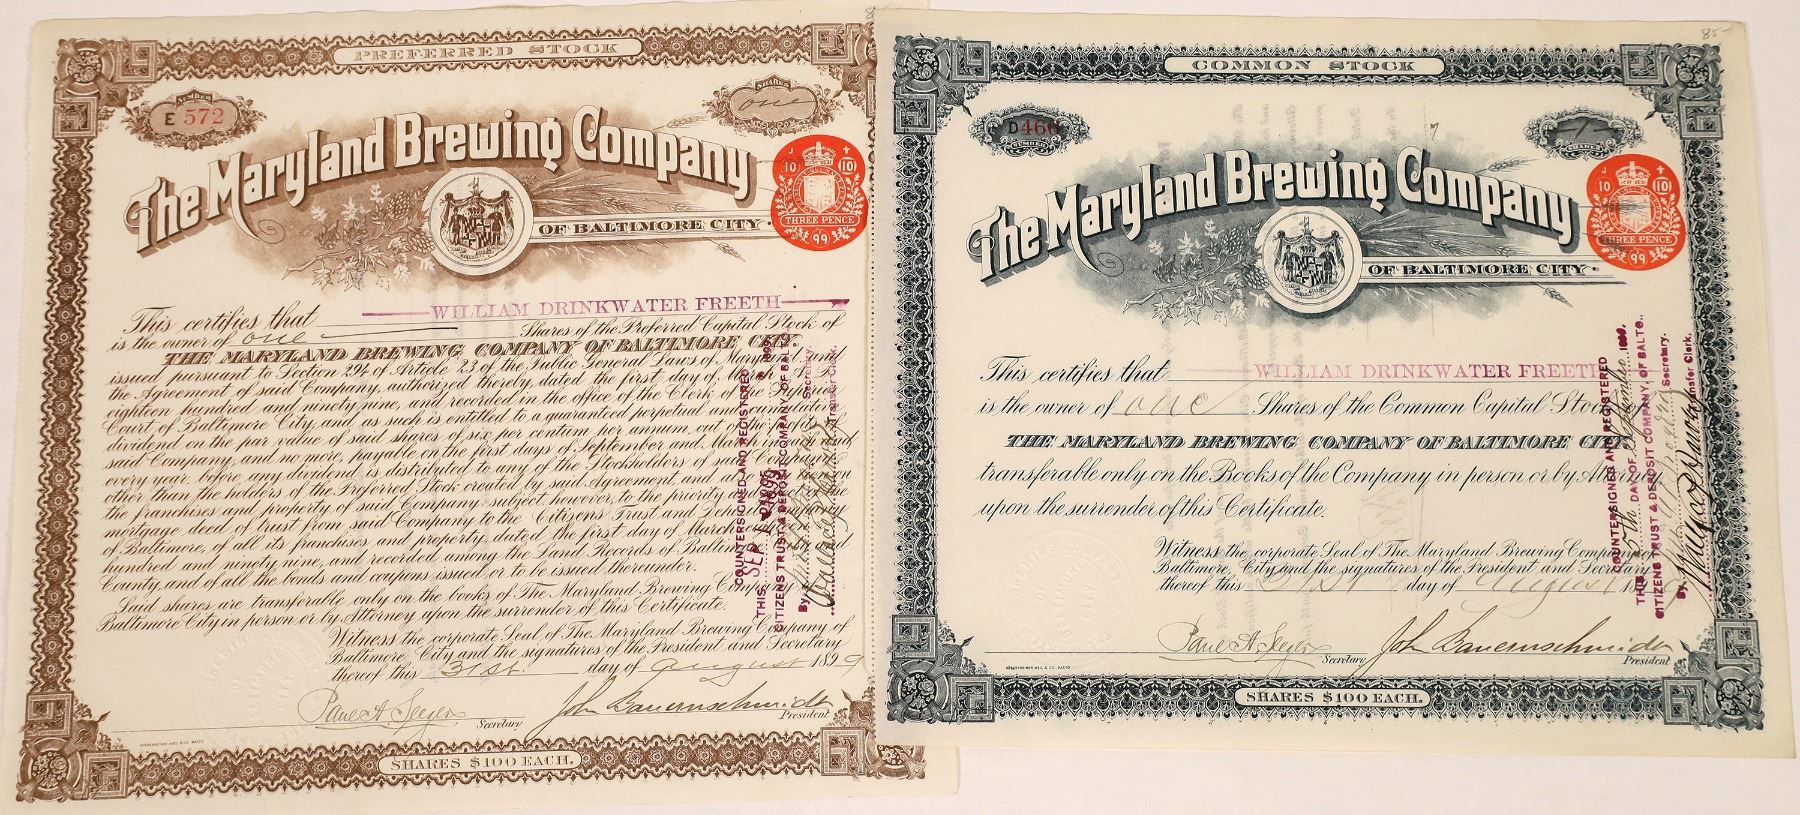 PREFERRED STOCK
NUMBER
E 572
SHARES
one
The Maryland Brewing Company
OF BALTIMORE CITY
10 10
THREE PENCE
99
This certifies that WILLIAM DRINKWATER FREETH
is the owner of one Shares of the Preferred Capital Stock of
THE MARYLAND BREWING COMPANY OF BALTIMORE CITY,
issued pursuant to Section 294 of Article 23 of the Public General Laws of Maryland and
the Agreement of said Company, authorized thereby, dated the first day of March
eighteen hundred and ninety nine, and recorded in the office of the Clerk of the Superior
Court of Baltimore City, and as such is entitled to a guaranteed perpetual and cumulative
dividend on the par value of said shares of six per centum per annum, out of the profits
said Company, and no more, payable on the first days of September and March in each and
every year, before any dividend is distributed to any of the Stockholders of said Company
other than the holders of the Preferred Stock created by said Agreement and a lien on
the franchises and property of said Company; subject, however, to the priority and
mortgage deed of trust from said Company to the Citizens Trust and Deposit
of Baltimore, of all its franchises and property, dated the first day of March
hundred and ninety nine, and recorded among the Land Records of Baltimore
County, and of all the bonds and coupons issued, or to be issued thereunder.
Said shares are transferable only on the books of the Maryland Brewing Company
Baltimore City in person or by Attorney upon the surrender of this Certificate.
Witness the corporate Seal of The Maryland Brewing Company of
Baltimore City and the signatures of the President and Secretary
thereof this 31st day of August 1899
Paul A. Seeger Secretary John Bauernschmidt President
SHARES $100 EACH.
COUNTERSIGNED AND REGISTERED
THIS SEP 1899
CITIZENS TRUST & DEPOSIT COMPANY OF BALTO.
By Secretary.
Transfer Clerk.
COMMON STOCK
85-
D 466
NUMBER
-1-
SHARES
7
The Maryland Brewing Company
OF BALTIMORE CITY
10 10
THREE PENCE
99
This certifies that WILLIAM DRINKWATER FREETH
is the owner of one Shares of the Common Capital Stock
THE MARYLAND BREWING COMPANY OF BALTIMORE CITY
transferable only on the Books of the Company in person or by Attorney
upon the surrender of this Certificate.
Witness the corporate Seal of The Maryland Brewing Company of
Baltimore City and the signatures of the President and Secretary
thereof this 31st day of August 189
Paul A. Seeger Secretary John Bauernschmidt President
SHARES $100 EACH.
COUNTERSIGNED AND REGISTERED
THIS 5th DAY OF September 1899.
CITIZENS TRUST & DEPOSIT COMPANY, OF BALTO.,
By Secretary.
Transfer Clerk.